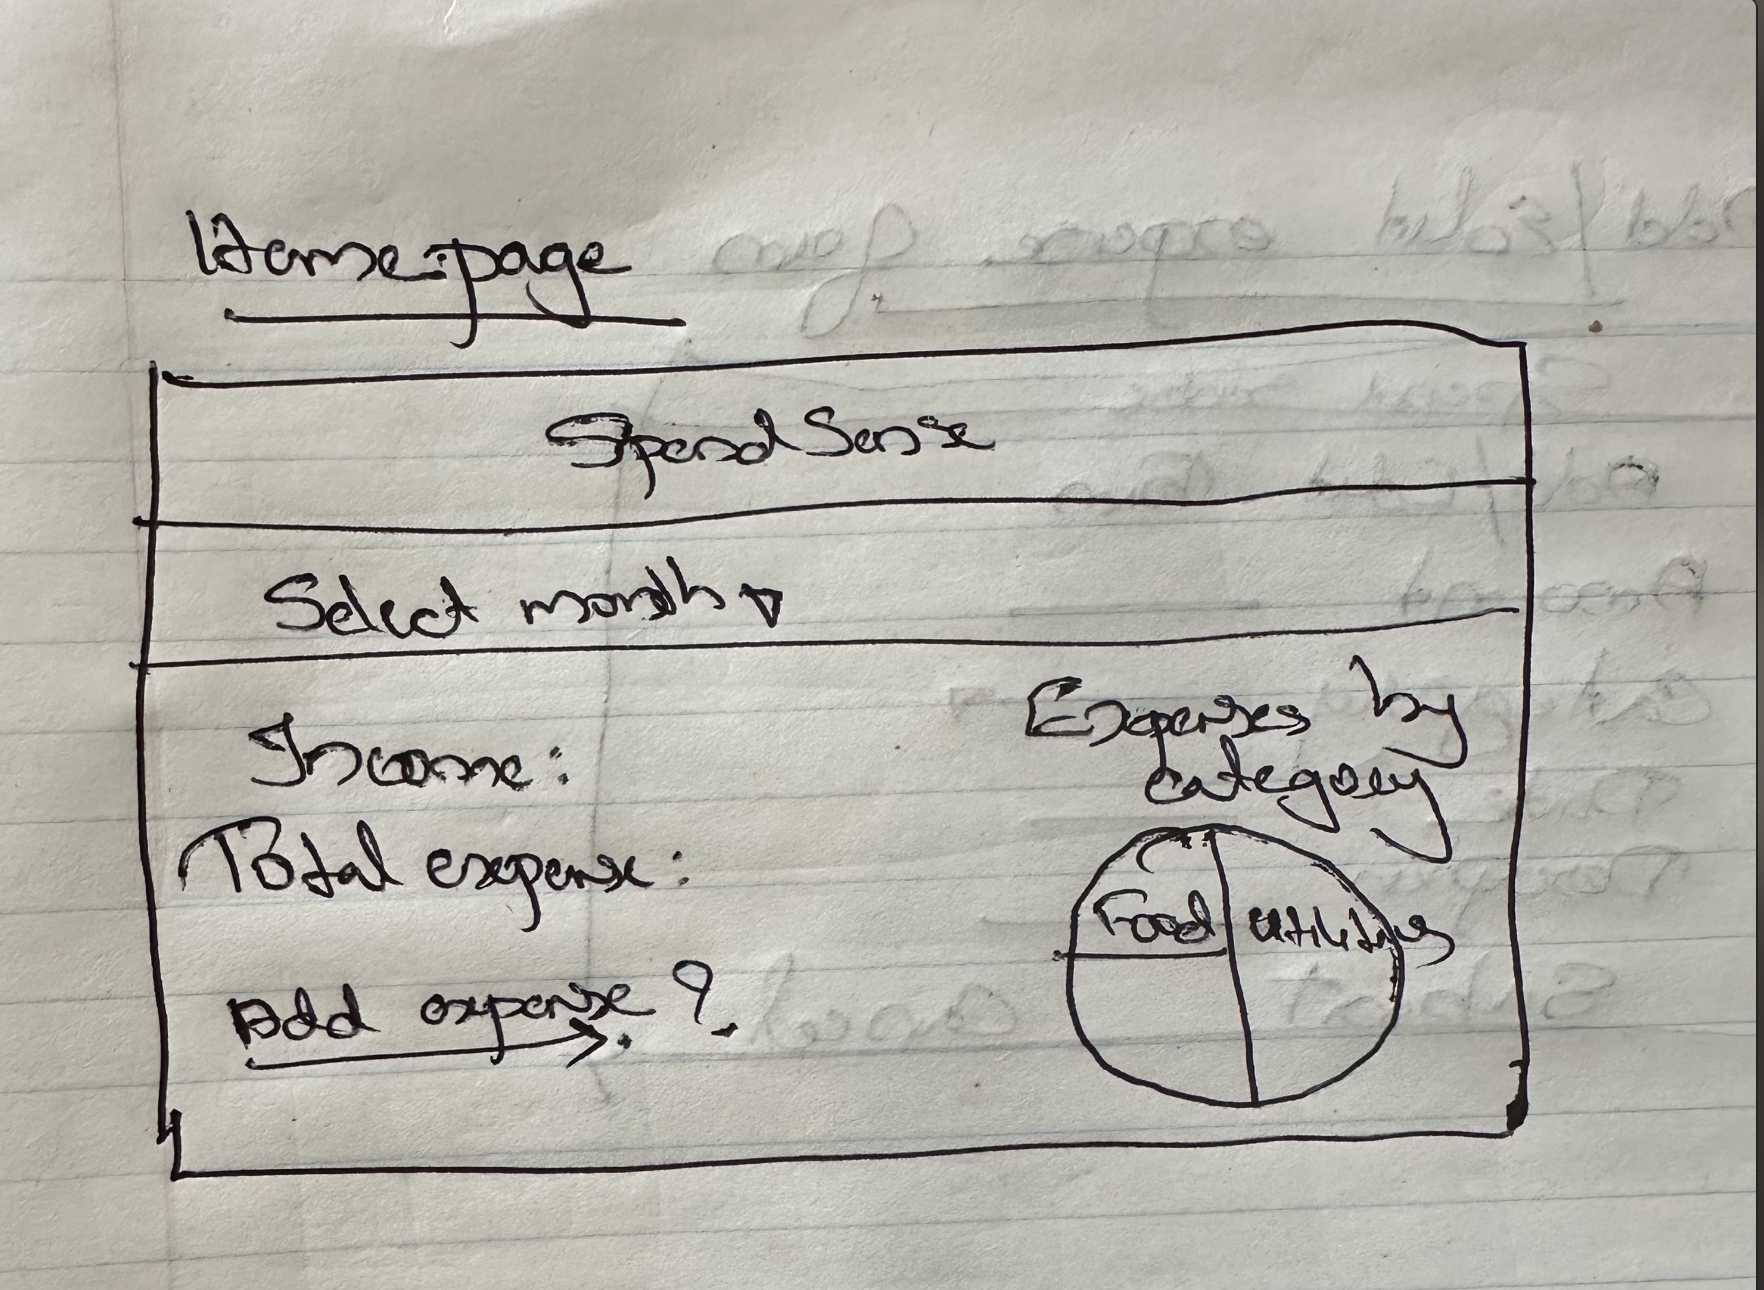 Home:page
SpendSense
Select month
Income:
Total expense:
Add expense ?
Expenses by
category
Food
utilities